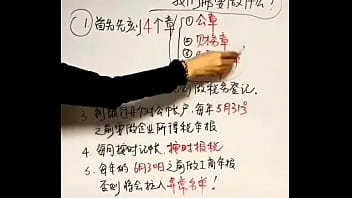 我们需要做什么？
①首先先刻4个章
①公章
②财务章
③
做税务登记。
3、到银行开对公帐户，每年5月31号
之前要做企业所得税年报
4、每月按时记帐，按时报税
5、每年的6月30号之前做工商年报
否则将会拉入异常名单！